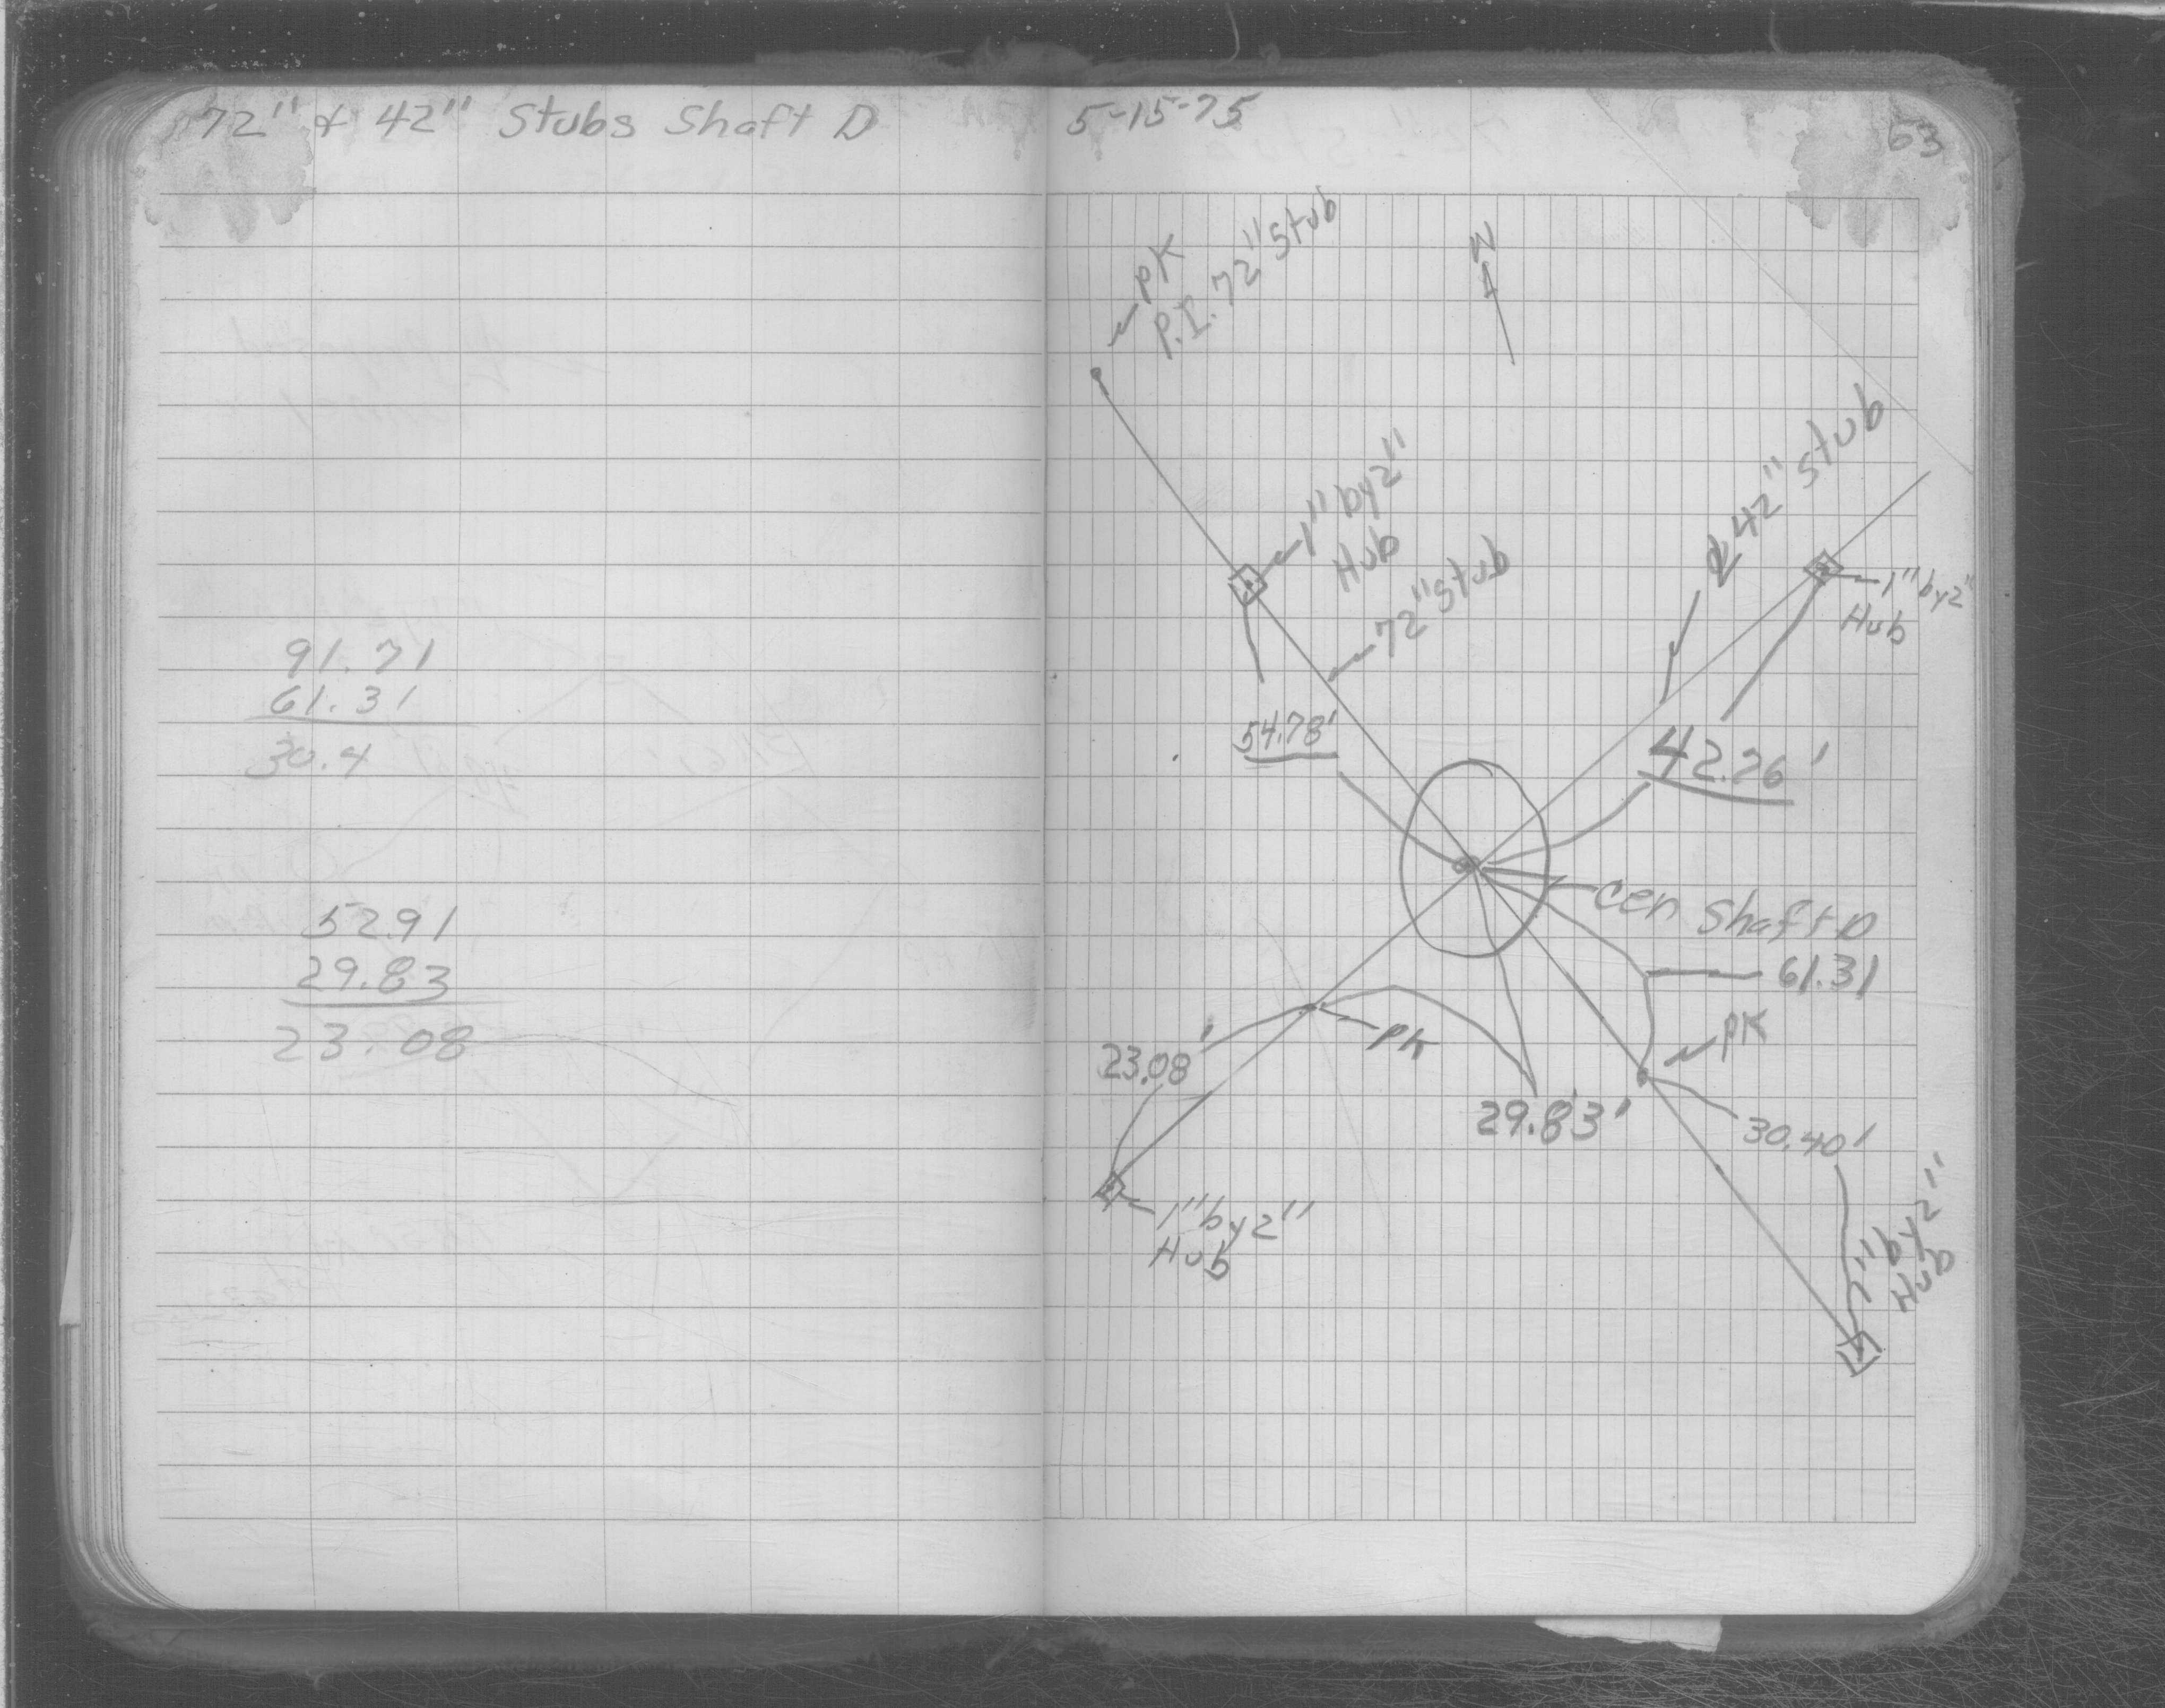 72" & 42" Stubs Shaft D
91.71
61.31
30.4
52.91
29.83
23.08
5-15-75
63
PK
P.I. 72" Stub
N
1" by 2"
Hub
72" Stub
℄ 42" Stub
1" by 2"
Hub
54.78'
42.26'
Cen Shaft D
61.31
PK
PK
23.08'
29.83'
30.40'
1" by 2"
Hub
1" by 2"
Hub